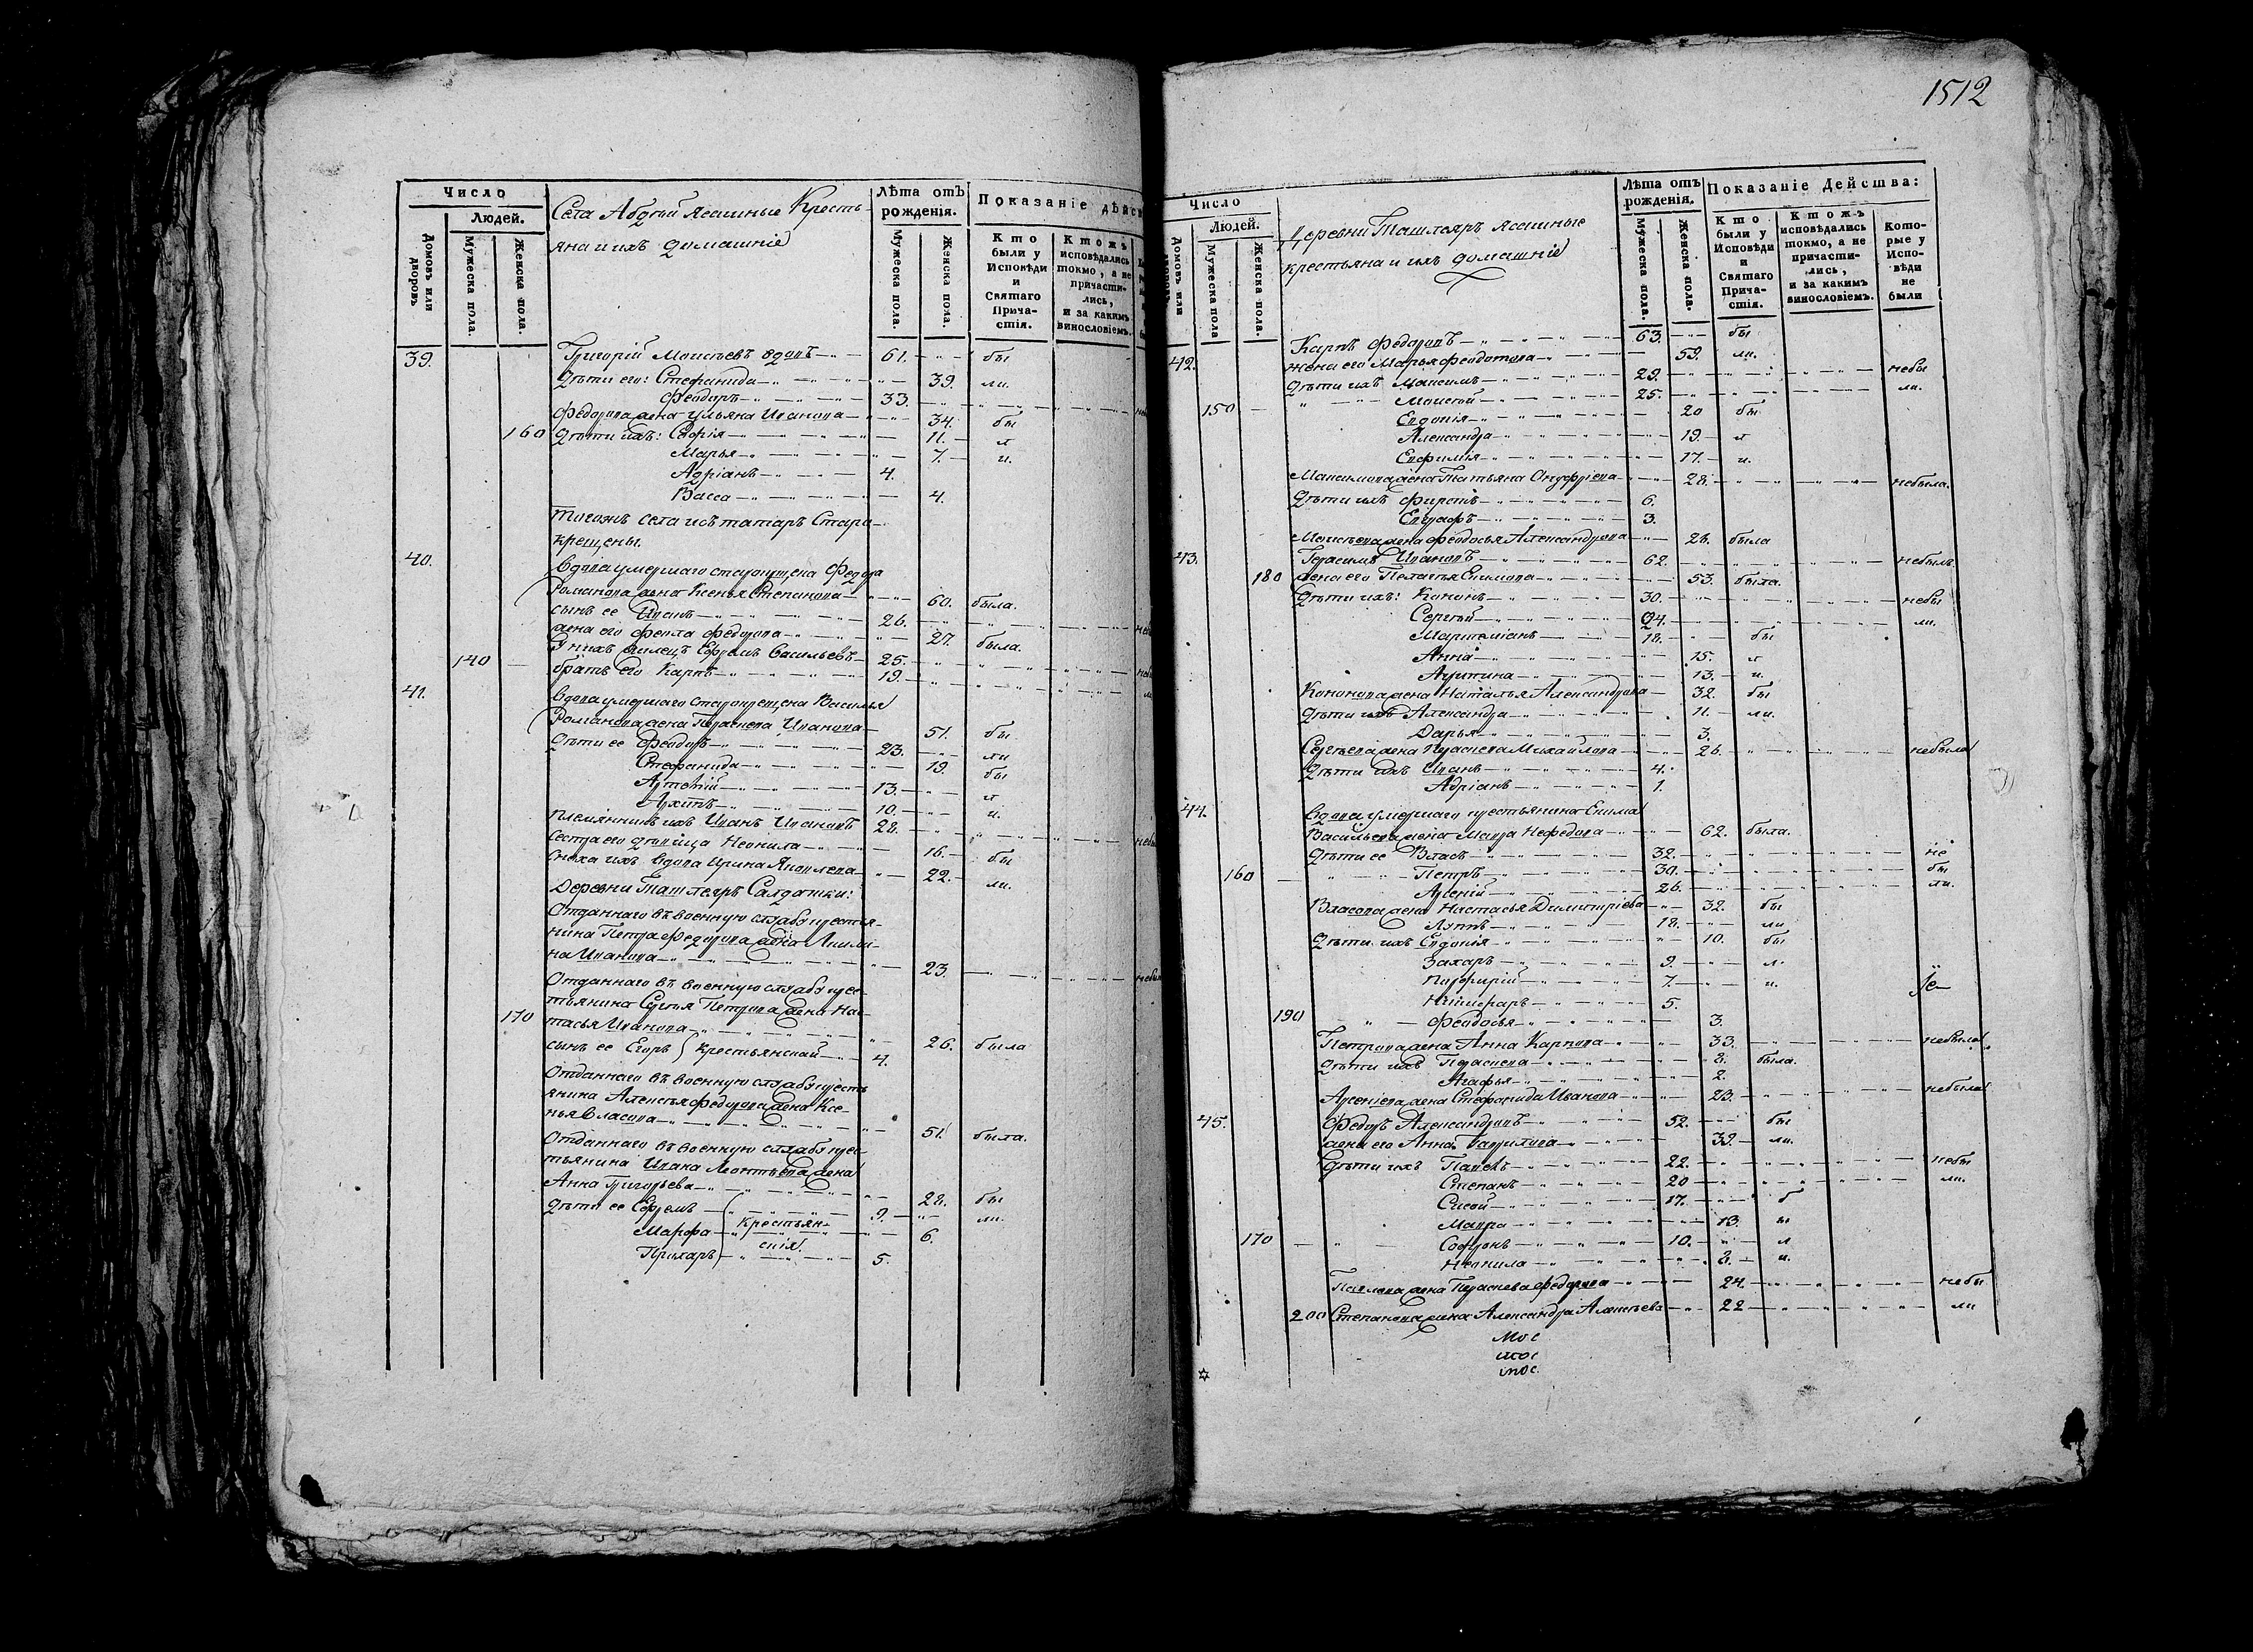 1512
Число
Людей.
Домовъ или дворовъ
Мужеска пола.
Женска пола.
Села Абдей ясашные Кресть-
яна и ихъ домашнiе
Лѣта отъ рожденiя.
Мужеска пола.
Женска пола.
Показанiе дѣйс
Кто были у Исповѣди и Святаго Прича-стiя.
Ктожъ исповѣдались токмо, а не причасти-лись, и за какимъ винословiемъ.
39. Григорiй Моисѣевъ вдовъ 61. бы
Дѣти его: Стефанида 39. ли.
Феодоръ 33.
Федорова жена Ульяна Иванова 34. бы
160 Дѣти ихъ: Софiя 11. л
Марья 7. и.
Адрiанъ 4.
Васса 4.
Тогожъ села исъ татаръ Старо-
крещены.
40. Вдова умершаго старокрещена Федора
Романова жена Ксенья Степанова 60. была.
сынъ ее Иванъ 26.
жена его Фекла Федорова 27. была.
У нихъ жилецъ Ефремъ Васильевъ 25.
140 братъ его Карпъ 19.
41. Вдова умершаго старокрещена Василья
Романова жена Прасковья Иванова 51. бы
Дѣти ее Феодоръ 23. ли
Стефанида 19. бы
Артемiй 13. л
Архипъ 10. и.
Племянникъ ихъ Иванъ Ивановъ 28.
Сестра его девица Неонила 16. бы
Сноха ихъ вдова Ирина Яковлева 22. ли.
Деревни Ташляръ Салдатки:
Отданнаго въ военную службу крестья-
нина Петра Федорова жена Акили-
на Иванова 23.
Отданнаго въ военную службу крес-
тьянина Сергья Петрова жена Нас-
170 тасья Иванова 26. была
сынъ ее Егоръ крестьянской 4.
Отданнаго въ военную службу кресть
янина Алексѣя Федорова жена Ксе-
нья Власова 51. была.
Отданнаго въ военную службу крес-
тьянина Ивана Леонтьева жена
Анна Григорьева 28. бы
Дѣти ее Ефремъ 9. ли.
Марфа Крестьян- 6.
Прохаръ скiя. 5.
Число
Людей.
Домовъ или дворовъ
Мужеска пола
Женска пола.
Деревни Ташляръ ясашные
крестьяна и ихъ домашнiе
Лѣта отъ рожденiя.
Мужеска пола.
Женска пола.
Показанiе Действа:
Кто были у Исповѣди и Святаго Прича-стiя.
Ктожъ исповѣдались токмо, а не причасти-лись, и за какимъ винословiемъ.
Кото-рые у Испо-вѣди не были
42. Карпъ Федоровъ 63. бы
жена его Марья Феодотова 59. ли.
Дѣти ихъ Максимъ 29. небы
150 Моисей 25. ли.
Евдокiя 20 бы
Александра 19. л
Евфимiя 17. и.
Максимова жена Татьяна Онуфрiева 28. небыла.
Дѣти ихъ Фирсъ 6.
Евграфъ 3.
Моисѣева жена Феодосья Александрова 28. была
43. Герасимъ Ивановъ 62. небылъ
180 жена его Пелагья Екимова 53. была.
Дѣти ихъ: Кононъ 30. небы
Сергѣй 24. ли.
Мартемiанъ 18. бы
Анна 15. л
Агрипина 13. и.
Кононова жена Наталья Александрова 32. бы
Дѣти ихъ Александра 11. ли.
Дарья 3.
Сергѣева жена Прасковья Михайлова 26. небыла
Дѣти ихъ Иванъ 4.
Адрiанъ 1.
44. Вдова умершаго крестьянина Екима
Васильева жена Мавра Нефедова 62. была.
Дѣти ее Власъ 32. не
160 Петръ 30. бы
Арсенiй 26. ли.
Власова жена Настасья Димитрiева 32. бы
Луппъ 18. ли
Дѣти ихъ Евдокiя 10. бы
Захаръ 9. л.
Порфирiй 7. и.
Никифаръ 5.
190 Феодосья 3.
Петрова жена Анна Карпова 33. небыла
Дѣти ихъ Прасковья 8. была.
Агафья 2.
Арсенiева жена Стефанида Иванова 23. небыла
45. Федоръ Александровъ 52. бы
жена его Анна Гаврилова 39. ли.
Дѣти ихъ Павелъ 22. небы
Степанъ 20 ли.
Сысой 17. б
Мавра 13. ы
170 Софронъ 10. л
Неонила 8. и.
Павлова жена Прасковья Федорова 24. небы
200 Степанова жена Александра Алексѣева 22 ли